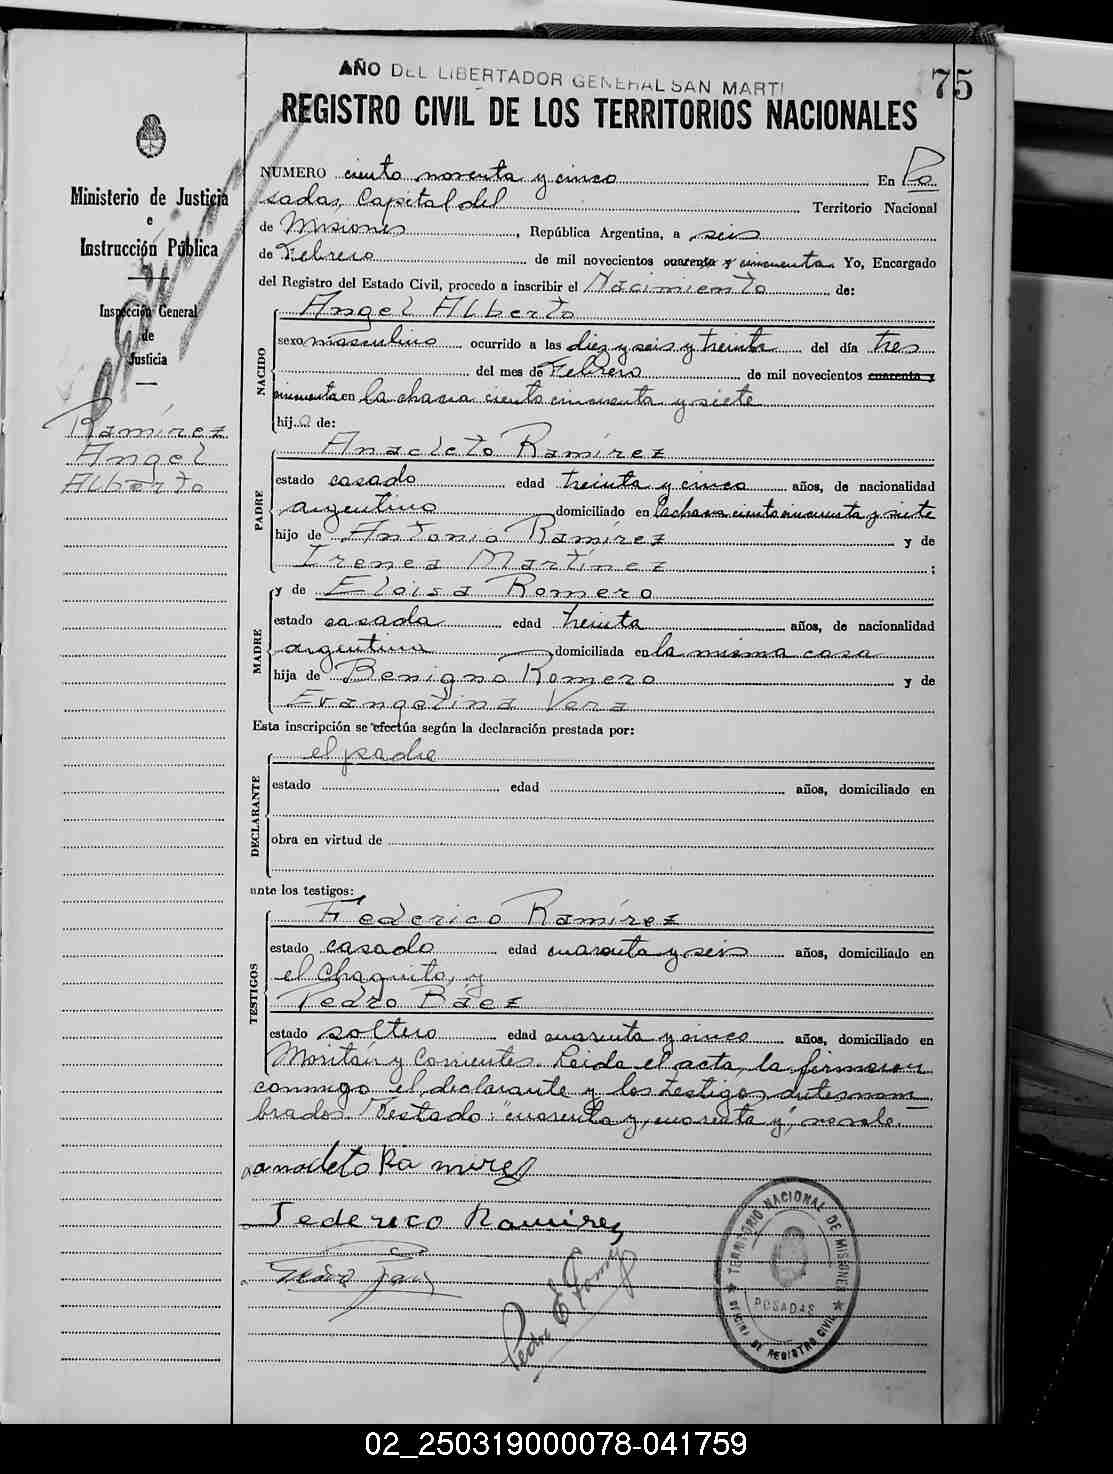 AÑO DEL LIBERTADOR GENERAL SAN MARTI
75
REGISTRO CIVIL DE LOS TERRITORIOS NACIONALES
Ministerio de Justicia
e
Instrucción Pública
Inspección General
de
Justicia
Ramírez
Angel
Alberto
NUMERO ciento noventa y cinco En Po
sadas, Capital del Territorio Nacional
de Misiones, República Argentina, a seis
de Febrero de mil novecientos cuarenta y cincuenta. Yo, Encargado
del Registro del Estado Civil, procedo a inscribir el Nacimiento de:
NACIDO
Angel Alberto
sexo masculino ocurrido a las diez y seis y treinta del día tres
del mes de Febrero de mil novecientos cuarenta y
cincuenta en la chacra ciento cincuenta y siete
hijo de:
PADRE
Anacleto Ramírez
estado casado edad treinta y cinco años, de nacionalidad
argentino domiciliado en la chacra ciento cincuenta y siete
hijo de Antonio Ramírez y de
Irenea Martínez;
MADRE
y de Eloisa Romero
estado casada edad treinta años, de nacionalidad
argentina domiciliada en la misma casa
hija de Benigno Romero y de
Evangelina Vera
Esta inscripción se efectúa según la declaración prestada por:
DECLARANTE
el padre
estado edad años, domiciliado en
obra en virtud de
ante los testigos:
TESTIGOS
Federico Ramírez
estado casado edad cuarenta y seis años, domiciliado en
el Chaquito, y
Pedro Báez
estado soltero edad cuarenta y cinco años, domiciliado en
y Corrientes. Leida el acta, la firmaron
conmigo el declarante y los testigos antesnom
brados. Testado: cuarenta y, cuarenta y, no vale.
anacleto Ramires
Federico Ramires
Pedro
Pedro E
TERRITORIO NACIONAL DE MISIONES
POSADAS
OFICINA DE REGISTRO CIVIL
02_250319000078-041759